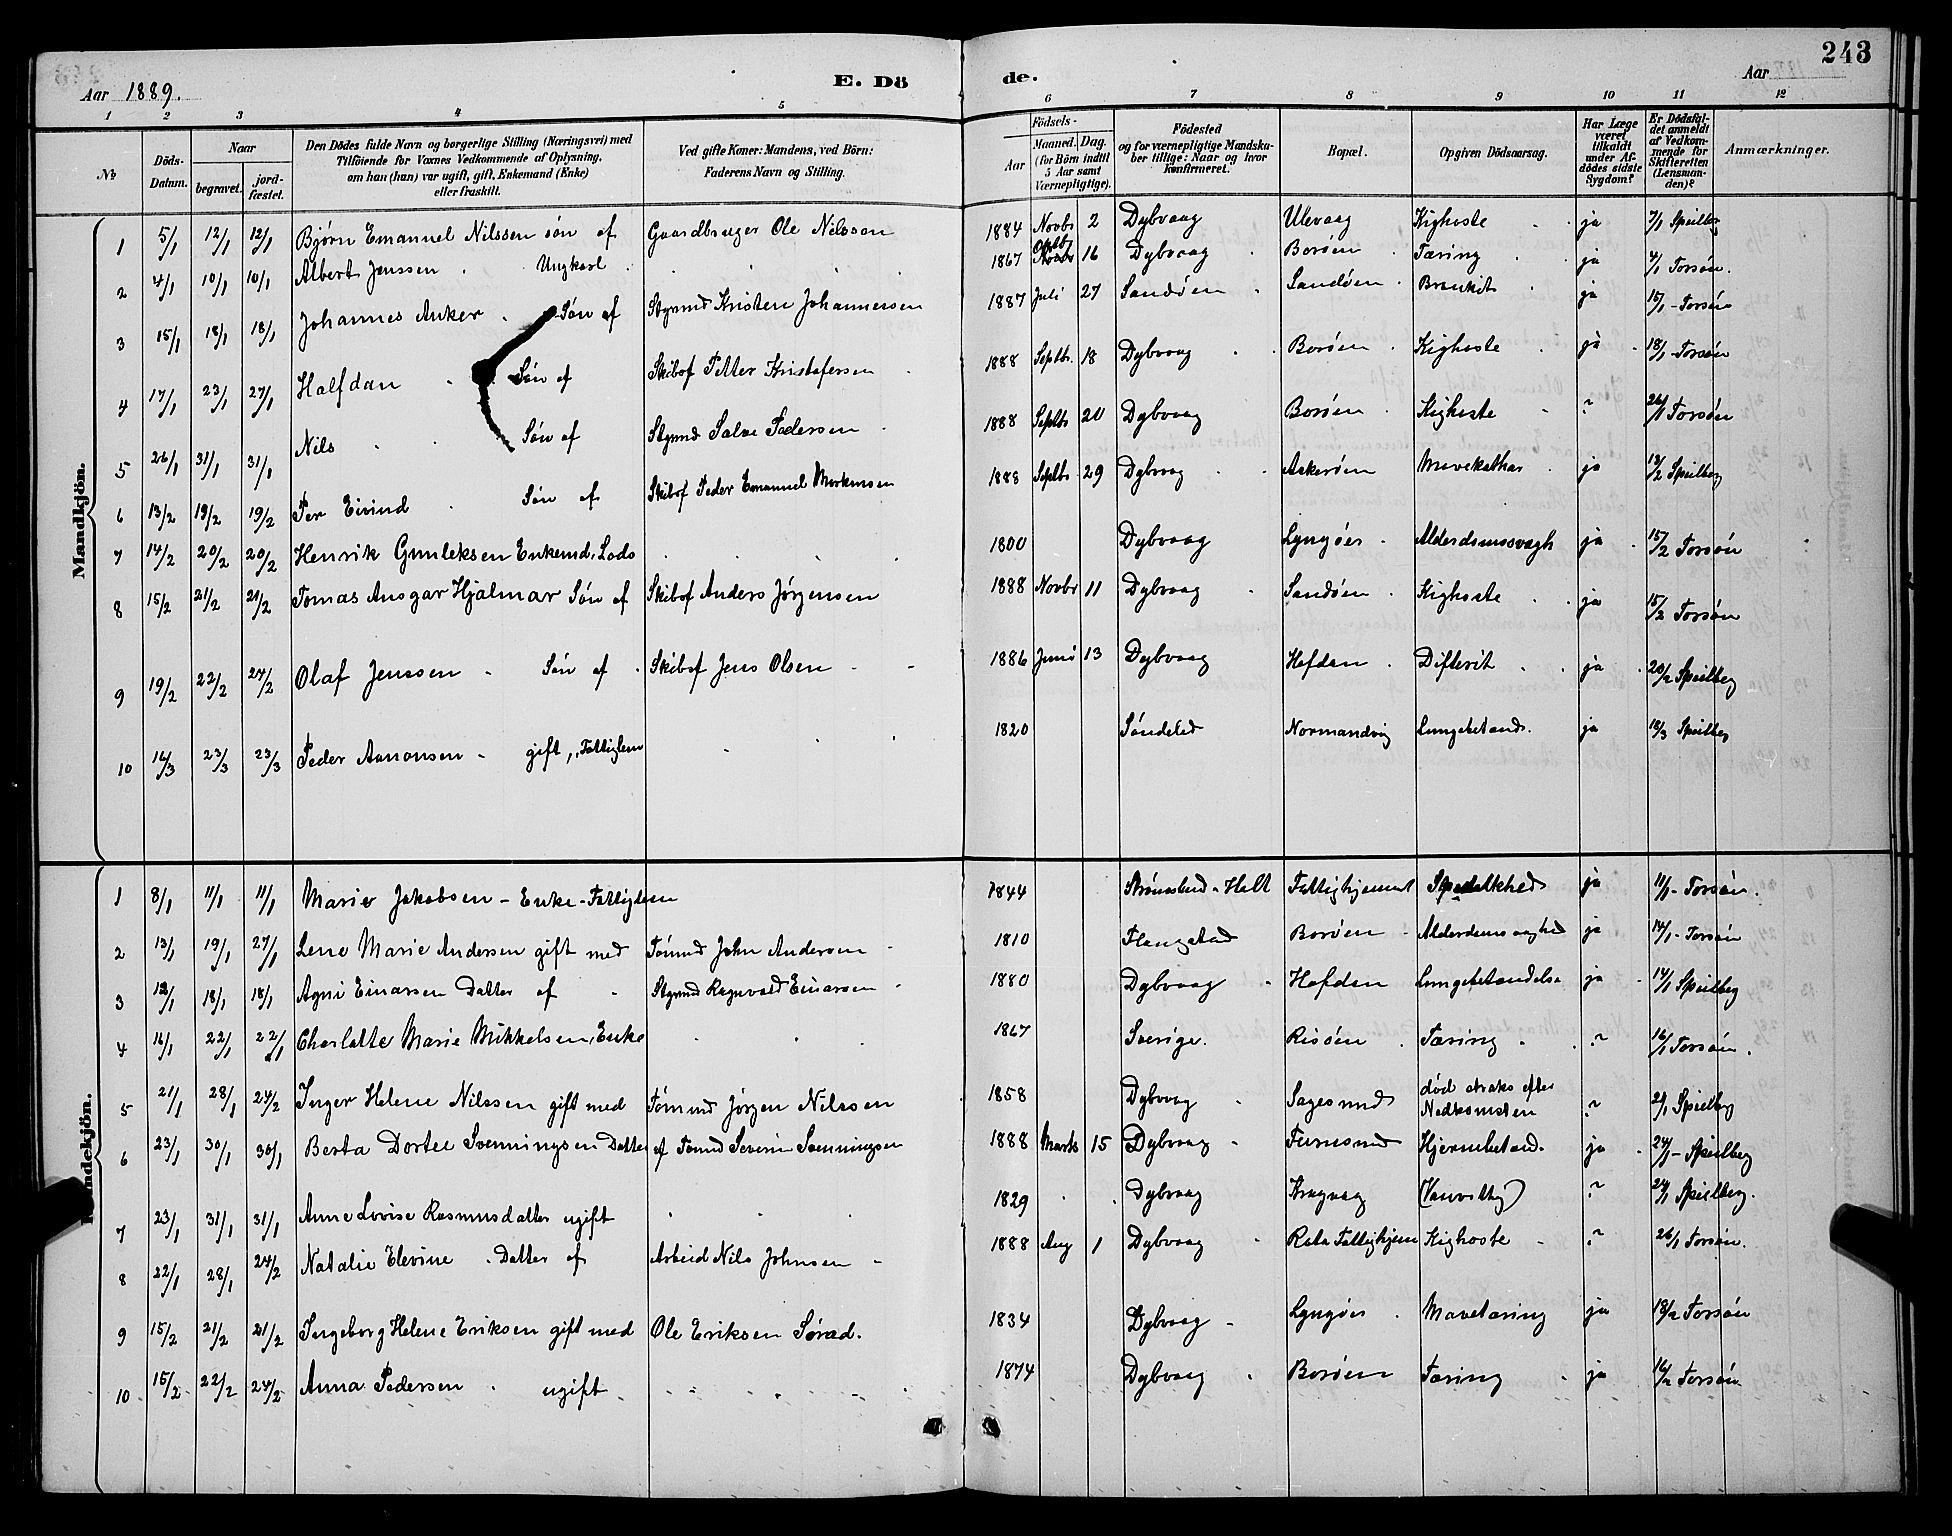 243
Aar 1889.
E. Dö
de.
Aar
1 2 3 4 5 6 7 8 9 10 11 12
№
Döds-Datum.
Naar
begravet.
jord-fæstet.
Den Dödes fulde Navn og borgerlige Stilling (Næringsvei) med
Tilföiende for Voxnes Vedkommende af Oplysning,
om han (hun) var ugift, gift, Enkemand (Enke)
eller fraskilt.
Ved gifte Koner: Mandens, ved Börn:
Faderens Navn og Stilling.
Födsels-
Aar
Maaned.
Dag.
(for Börn indtil
5 Aar samt
Værnepligtige).
Födested
og for værnepligtige Mandska-
ber tillige: Naar og hvor
konfirmeret.
Bopæl.
Opgiven Dödsaarsag.
Har Læge
været
tilkaldt
under Af-
dödes sidste
Sygdom?
Er Dödsfal-
det anmeldt
af Vedkom-
mende for
Skifteretten
(Lensman-
den)?
Anmærkninger.
Mandkjön.
1 5/1 12/1 12/1 Bjørn Emanuel Nilssen søn af Gaardbruger Ole Nilsson 1884 Novbr 2 Dybvaag Ulevaag Kighoste ja 7/1 Speilberg
2 4/1 10/1 10/1 Albert Jenssen Ungkarl 1867 16 Dybvaag Borøen Tæring ja 4/1 Torsøn.
3 15/1 18/1 18/1 Johannes Anker Søn af Styrmd Kristen Johannesen 1887 Juli 27 Sandøen Sandøen Bronkit ja 15/1 - Torsøn
4 17/1 23/1 27/1 Halfdan Søn af Skibsf Petter Kristofersen 1888 Septbr. 18 Dybvaag Borøen Kighoste ja 18/1 - Torsøn
5 26/1 31/1 31/1 Nils Søn af Styrmd Salve Pedersen 1888 Septbr 20 Dybvaag Borøen Kighoste ? 26/1 Torsøn
6 13/2 19/2 19/2 Per Eivind Søn af Skibsf Peder Emanuel Markussen 1888 Septbr 29 Dybvaag Askerøen Mavekathar ja 13/2 Speilberg
7 14/2 20/2 20/2 Henrik Gunleksen Enkemd, Lods 1800 Dybvaag Lyngøer Alderdomssvagh ja 15/2 Torsøn
8 15/2 21/2 21/2 Tomas Ansgar Hjalmar Søn af Skibsf Anders Jørgensen 1888 Novbr 11 Dybvaag Sandøen Kighoste ja 15/2 Torsøn
9 19/2 22/2 24/2 Olaf Jenssen Søn af Skibsf Jens Olsen 1886 Juni 13 Dybvaag Hofdan Difterit ja 20/2 Speilberg
10 16/3 23/3 23/3 Peder Aanonsen gift, Fattiglem 1820 Søndeled Normandvig Lungebetænd. ja 18/3 Speilberg
Kvindekjön.
1 8/1 11/1 11/1 Marie Jakobsen - Enke - Fattiglem 1844 Holt Fattighjemmet Spedalskhed ja 11/1 - Torsøn.
2 13/1 19/1 27/1 Lene Marie Andersen gift med Tømmd John Andersen 1810 Flangstad Borøen Alderdomssvaghed ja 14/1 - Torsøn
3 12/1 18/1 18/1 Agni Einarsen Datter af Styrmd Ragnvald Einarsen 1880 Dybvaag Hofdan Lungebetændelse ja 14/1 Speilberg
4 16/1 22/1 22/1 Charlotte Marie Mikkelsen, Enke 1867 Sverige. Risøen Tæring ? 16/1 Torsøn.
5 21/1 28/1 24/2 Inger Helene Nilssen gift med Tømmd Jørgen Nilssen 1858 Dybvaag Sagesund død straks efter
Nedkomsten ? 21/1 Speilberg
6 23/1 30/1 30/1 Berta Dortee Svenningsen Datter af Tømmd Severin Svenningsen 1888 Marts 15 Dybvaag Furusund Hjernebetænd. ja 24/1 - Speilberg
7 23/1 31/1 31/1 Anne Lovise Rasmusdatter ugift 1829 Dybvaag Kragvaag (Vanvittig) ? 24/1 Speilberg.
8 22/1 28/1 24/2 Natalie Elevine Datter af Arbeid Nils Johnsen 1888 Aug 1 Dybvaag Rota Fattighjem Kighoste ? 26/1 Torsøn.
9 15/2 21/2 21/2 Ingeborg Helene Eriksen gift med Ole Eriksen Sørad. 1834 Dybvaag Lyngøer Mavetæring ja 18/2 Torsøn
10 15/2 22/2 24/2 Anna Pedersen ugift 1874 Dybvaag Borøen Tæring ja 16/2 Torsøn